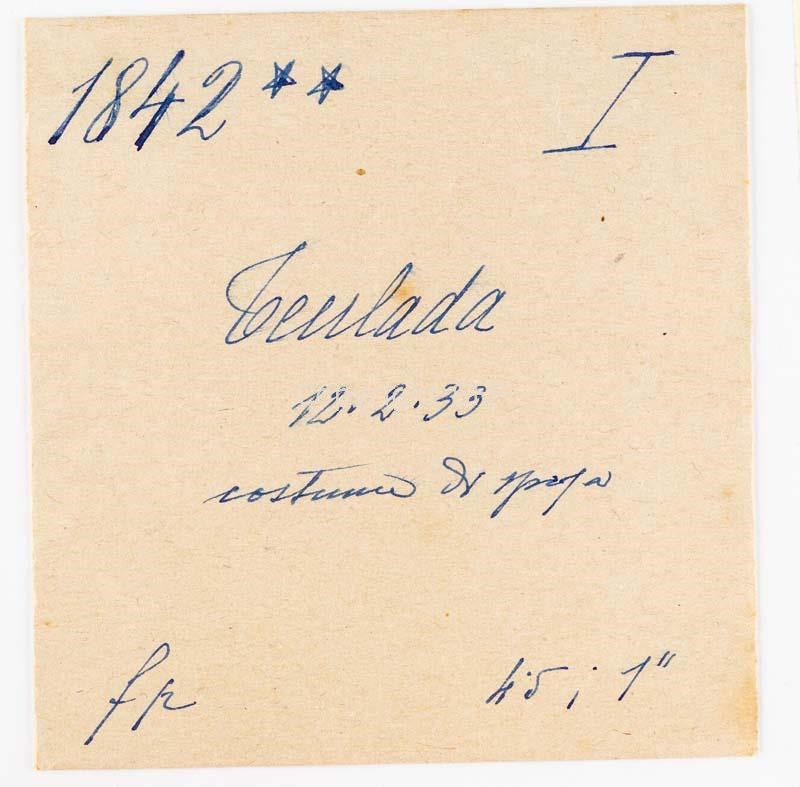 1842** I
Teulada
12.2.33
costume di sposa
fp 4.5; 1"